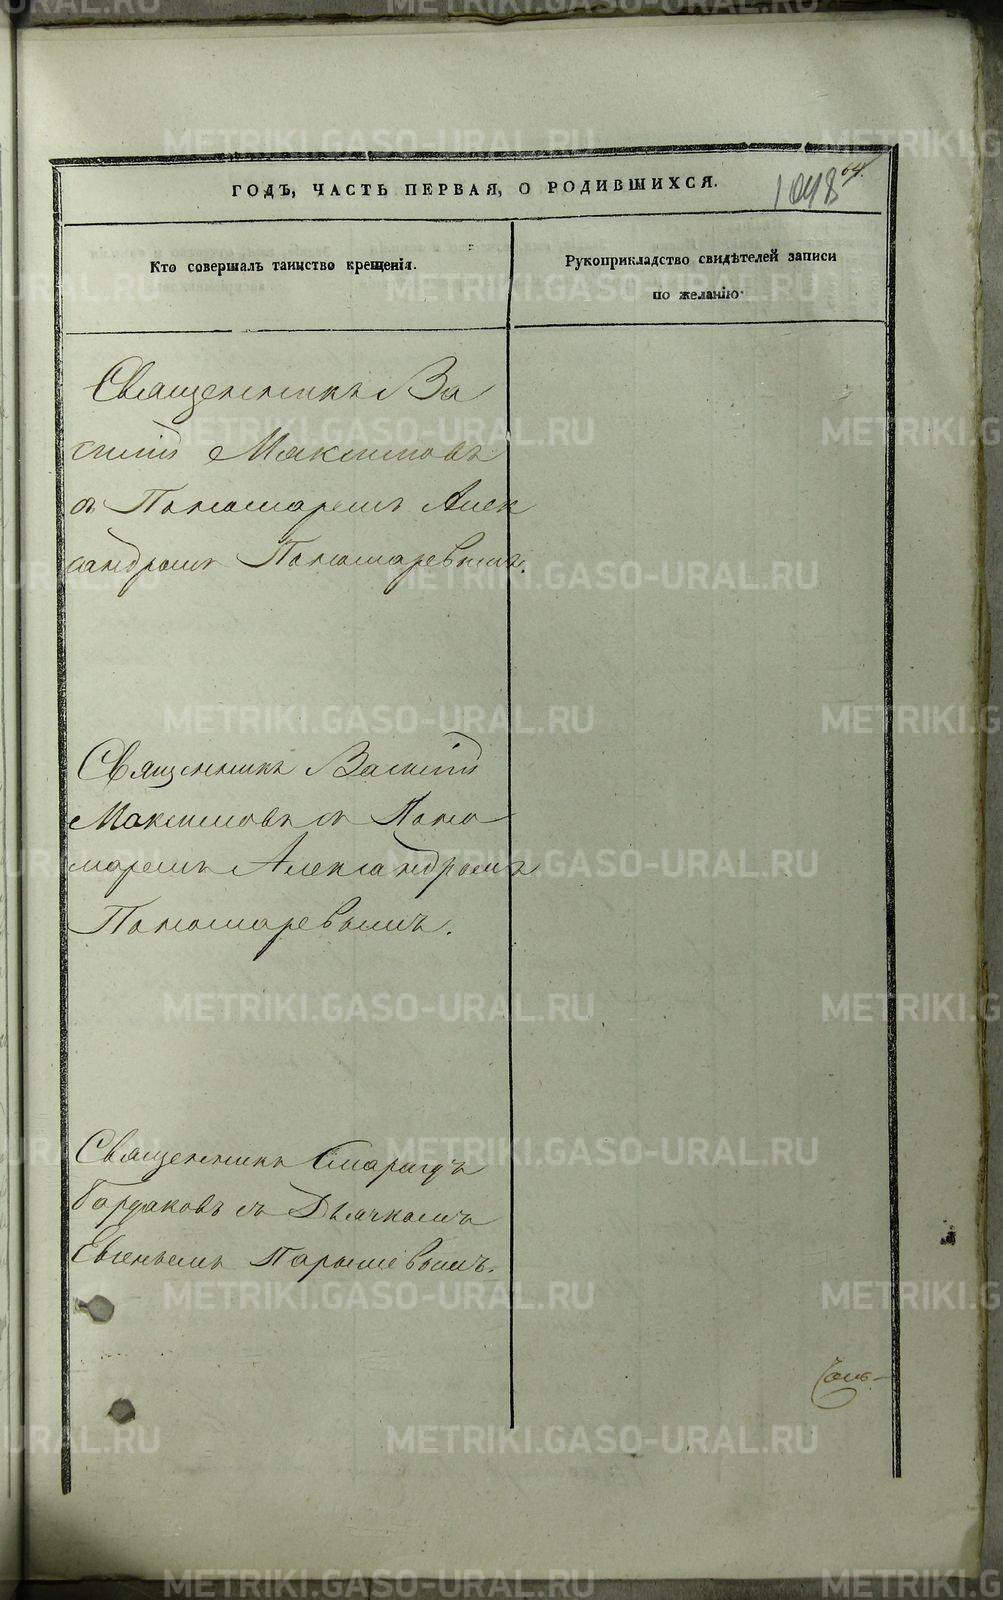 ГОДЪ, ЧАСТЬ ПЕРВАЯ, О РОДИВШИХСЯ.
1048
Кто совершалъ таинство крещенія.
Рукоприкладство свидѣтелей записи
по желанію
Священникъ Ва
силій Максимовъ
съ Пономаремъ Алек
сандромъ Пономаревымъ.
Священникъ Василій
Максимовъ съ Поно
маремъ Александромъ
Пономаревымъ.
Священникъ Смарагдъ
Бордаковъ съ Дьячкомъ
Евгеньемъ Парышевымъ.
METRIKI.GASO-URAL.RU